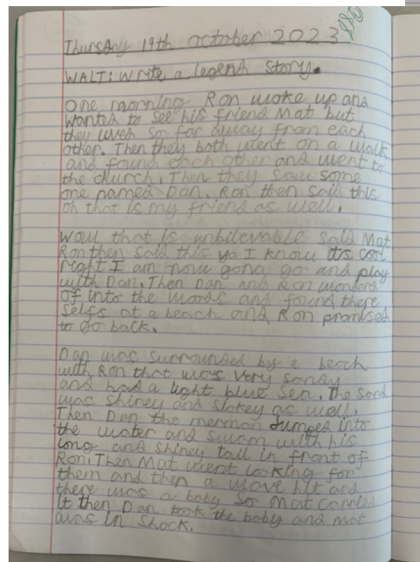 Thursday 19th october 2023
WALT: Write a legend Story.
One morning Ron woke up and
wanted to see his friend Mat but
they lived so far away from each
other. Then they both went on a walk
and found each other and went to
the church. Then they saw some
one named Dan. Ron then said this
oh that is my friend as well.
that is unbilevable said Mat
Ron then said this ya I know its
right I am now gona go and play
with Dan. Then Dan and Ron wonderd
of into the woods and found there
selfs at a beach and Ron promised
to go back.
Dan was surrounded by a beach
with Ron that was very sandy
and had a light blue sea. The sand
was shiney and as well.
Then Dan the merman Jumped into
the water and swam with his
long and shiney tail in front of
Ron. Then Mat went looking for
them and then a wave hit and
there was a baby so Mat carried
it then Dan took the baby and Mat
was in shock.